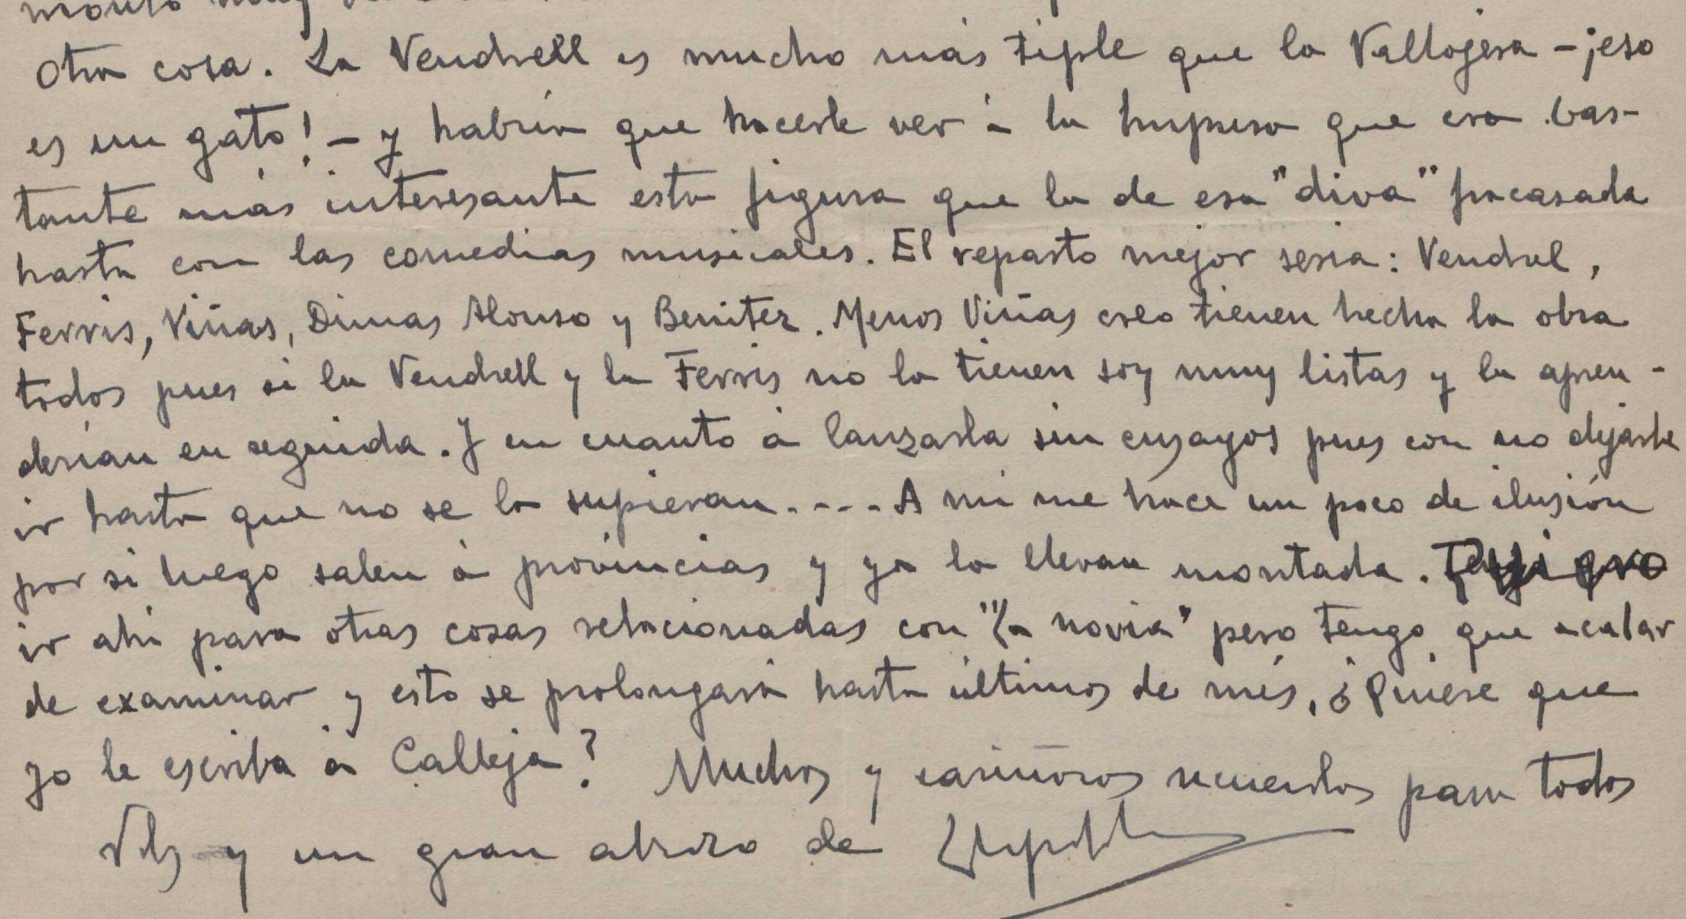 otra cosa. La Vendrell es mucho más tiple que la Vallojera - ¡eso
es un gato! - y habría que hacerle ver á la Empresa que era bas-
tante más interesante esta figura que la de esa "diva" fracasada
hasta con las comedias musicales. El reparto mejor seria: Vendrel,
Ferris, Viñas, Dimas Alonso y Benitez. Menos Viñas creo tienen hecha la obra
todos pues si la Vendrell y la Ferris no la tienen soy muy listas y la apren-
derían en seguida. Y en cuanto á lanzarla sin ensayos pues con no dejarle
ir hasta que no se la supieran.... A mi me hace un poco de ilusión
por si luego salen á provincias y ya la llevan montada.
ir ahi para otras cosas relacionadas con "La novia" pero tengo que acabar
de examinar y esto se prolongará hasta últimos de mes. ¿Quiere que
yo le escriba á Calleja? Muchos y cariñosos recuerdos para todos
Vds y un gran abrazo de